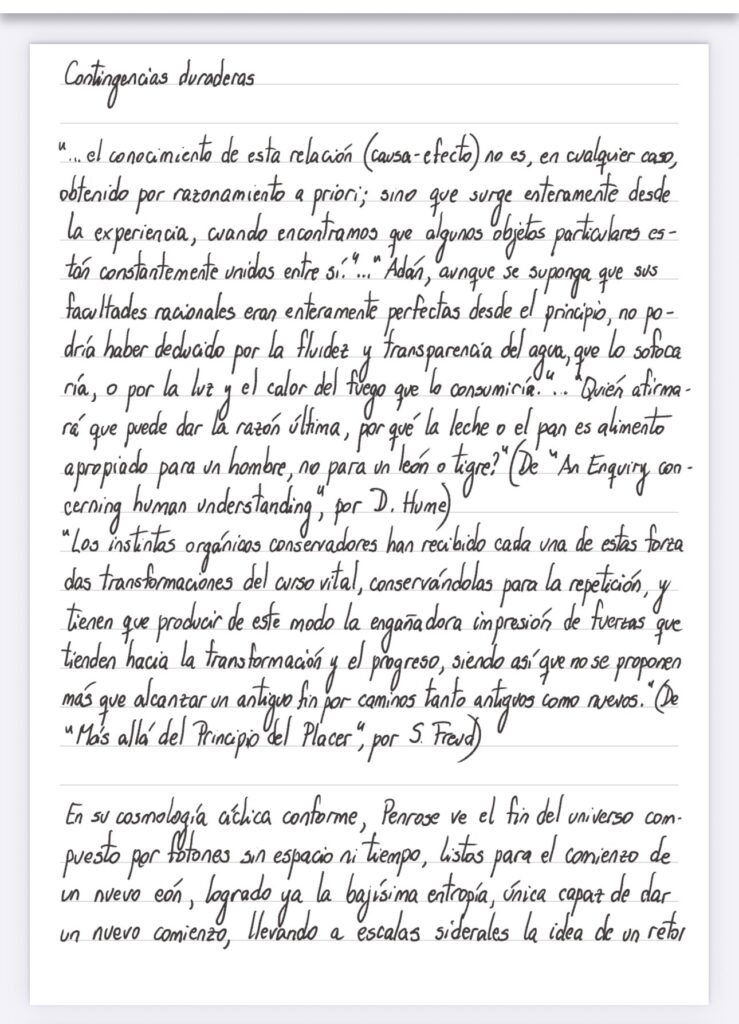 Contingencias duraderas
"... el conocimiento de esta relación (causa-efecto) no es, en cualquier caso,
obtenido por razonamiento a priori; sino que surge enteramente desde
la experiencia, cuando encontramos que algunos objetos particulares es-
tán constantemente unidos entre sí."..." Adán, aunque se suponga que sus
facultades racionales eran enteramente perfectas desde el principio, no po-
dría haber deducido por la fluidez y transparencia del agua, que lo sofoca
ría, o por la luz y el calor del fuego que lo consumiría."... "Quién afirma-
rá que puede dar la razón última, por qué la leche o el pan es alimento
apropiado para un hombre, no para un león o tigre?" (De "An Enquiry con-
cerning human understanding", por D. Hume)
"Los instintos orgánicos conservadores han recibido cada una de estas forza
das transformaciones del curso vital, conservándolas para la repetición, y
tienen que producir de este modo la engañadora impresión de fuerzas que
tienden hacia la transformación y el progreso, siendo así que no se proponen
más que alcanzar un antiguo fin por caminos tanto antiguos como nuevos." (De
"Más allá del Principio del Placer", por S. Freud)
En su cosmología cíclica conforme, Penrose ve el fin del universo com-
puesto por fotones sin espacio ni tiempo, listos para el comienzo de
un nuevo eón, logrado ya la bajísima entropía, única capaz de dar
un nuevo comienzo, llevando a escalas siderales la idea de un retor